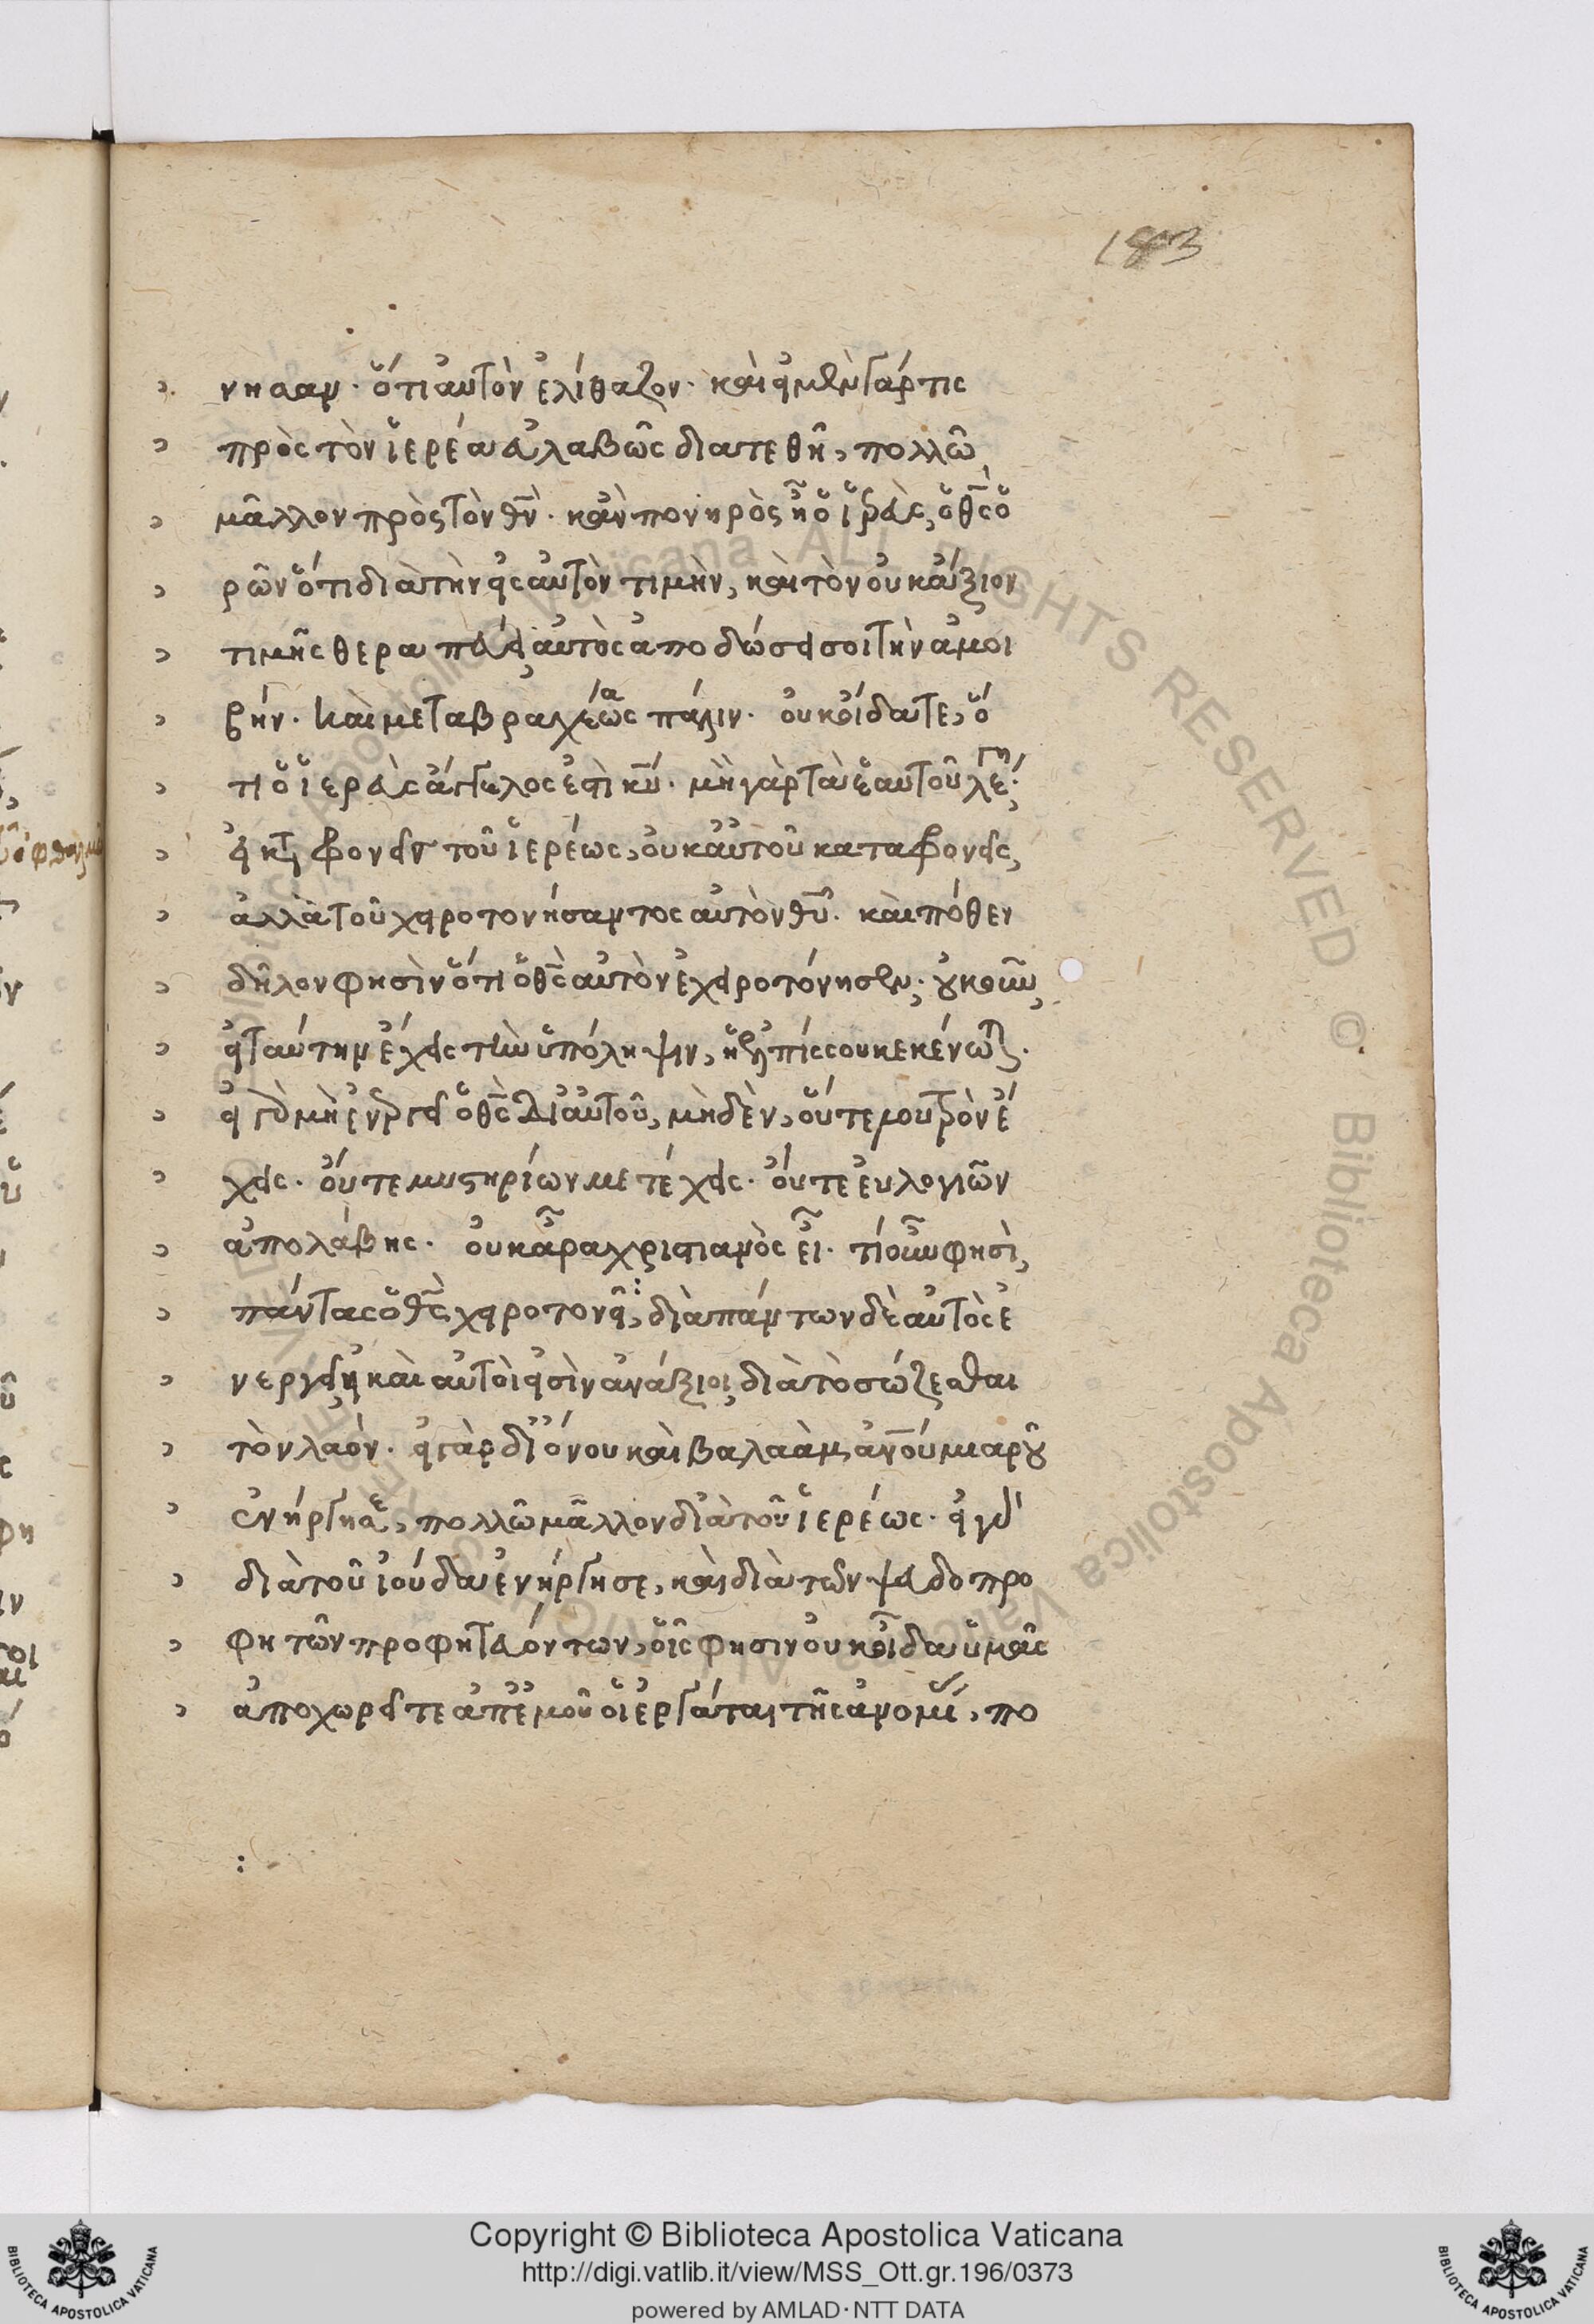 183
νησαν· ὅτι αὐτὸν ἐλίθαζον· καὶ εἰ μὲν γάρ τις
πρὸς τὸν ἱερέα εὐλαβῶς διατεθῆ, πολλῶ
μᾶλλον πρὸς τὸν θν̅· κἂν πονηρὸς ἦ ὁ ἱερεὺς, ὁ θς̅ ὁ
ρῶν ὅτι διὰ τὴν εἰς αὐτὸν τιμὴν, καὶ τὸν οὐκ ἄξιον
τιμῆς θεραπεύει, αὐτὸς ἀποδώσει σοι τὴν ἀμοι
βήν· καὶ μετὰ βραχέα ὡς πάλιν· οὐκ οἴδατε, ὅ
τι ὁ ἱερεὺς ἄγγελος ἐστὶ κυ̅· μὴ γὰρ τὰ ἑαυτοῦ λέγει;
εἰ κατα φρονεῖς τοῦ ἱερέως, οὐκ αὐτοῦ καταφρονεῖς,
ἀλλὰ τοῦ χειροτονήσαντος αὐτὸν θυ̅· καὶ πόθεν
δῆλον φησὶν ὅτι ὁ θς̅ αὐτὸν ἐχειροτόνησεν; οὐκοῦν
εἰ ταύτην ἔχεις τὴν ὑπόληψιν, ἡ ἐλπίς σου κεκένωται·
εἰ γὰρ μὴ ἐνεργεῖ ὁ θς̅ δι' αὐτοῦ, μηδὲν, οὔτε λουτρὸν ἔ
χεις· οὔτε μυστηρίων μετέχεις· οὔτε εὐλογιῶν
ἀπολάβης· οὐκ ἆρα χριστιανὸς εἶ· τί οὖν φησὶ,
πάντας ὁ θς̅ χειροτονεῖ; διὰ πάντων δὲ αὐτὸς ἐ
νεργεῖ, εἰ καὶ αὐτοὶ εἰσὶν ἀνάξιοι, διὰ τὸ σώζεσθαι
τὸν λαόν· εἰ γὰρ δι' ὄνου καὶ βαλαὰμ ἀνο̅υ μιαροῦ
ἐνήργησε, πολλῶ μᾶλλον διὰ τοῦ ἱερέως· εἰ γὰρ
διὰ τοῦ ἰούδα ἐνήργησε, καὶ διὰ τῶν ψευδοπρο
φητῶν προφητευόντων, οἷς φησιν οὐκ οἶδα ὑμᾶς
ἀποχωρεῖτε ἀπ' ἐμοῦ οἱ ἐργάται τῆς ἀνομίας, πο
:
Copyright © Biblioteca Apostolica Vaticana
http://digi.vatlib.it/view/MSS_Ott.gr.196/0373
powered by AMLAD·NTT DATA